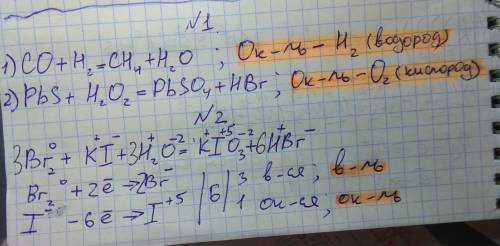 №1.
1) CO + H₂ = CH₄ + H₂O ; Ок-ль – H₂ (водород)
2) PbS + H₂O₂ = PbSO₄ + HBr ; Ок-ль – O₂ (кислород)
№2
3Br₂⁰ + K⁺I⁻ + 3H₂⁺O⁻² = K⁺I⁺⁵O₃⁻² + 6H⁺Br⁻
Br₂⁰ + 2ē → 2Br⁻ | 6 | 3 в-ся ; в-ль
I⁻ – 6ē → I⁺⁵ | 1 ок-ся ; ок-ль